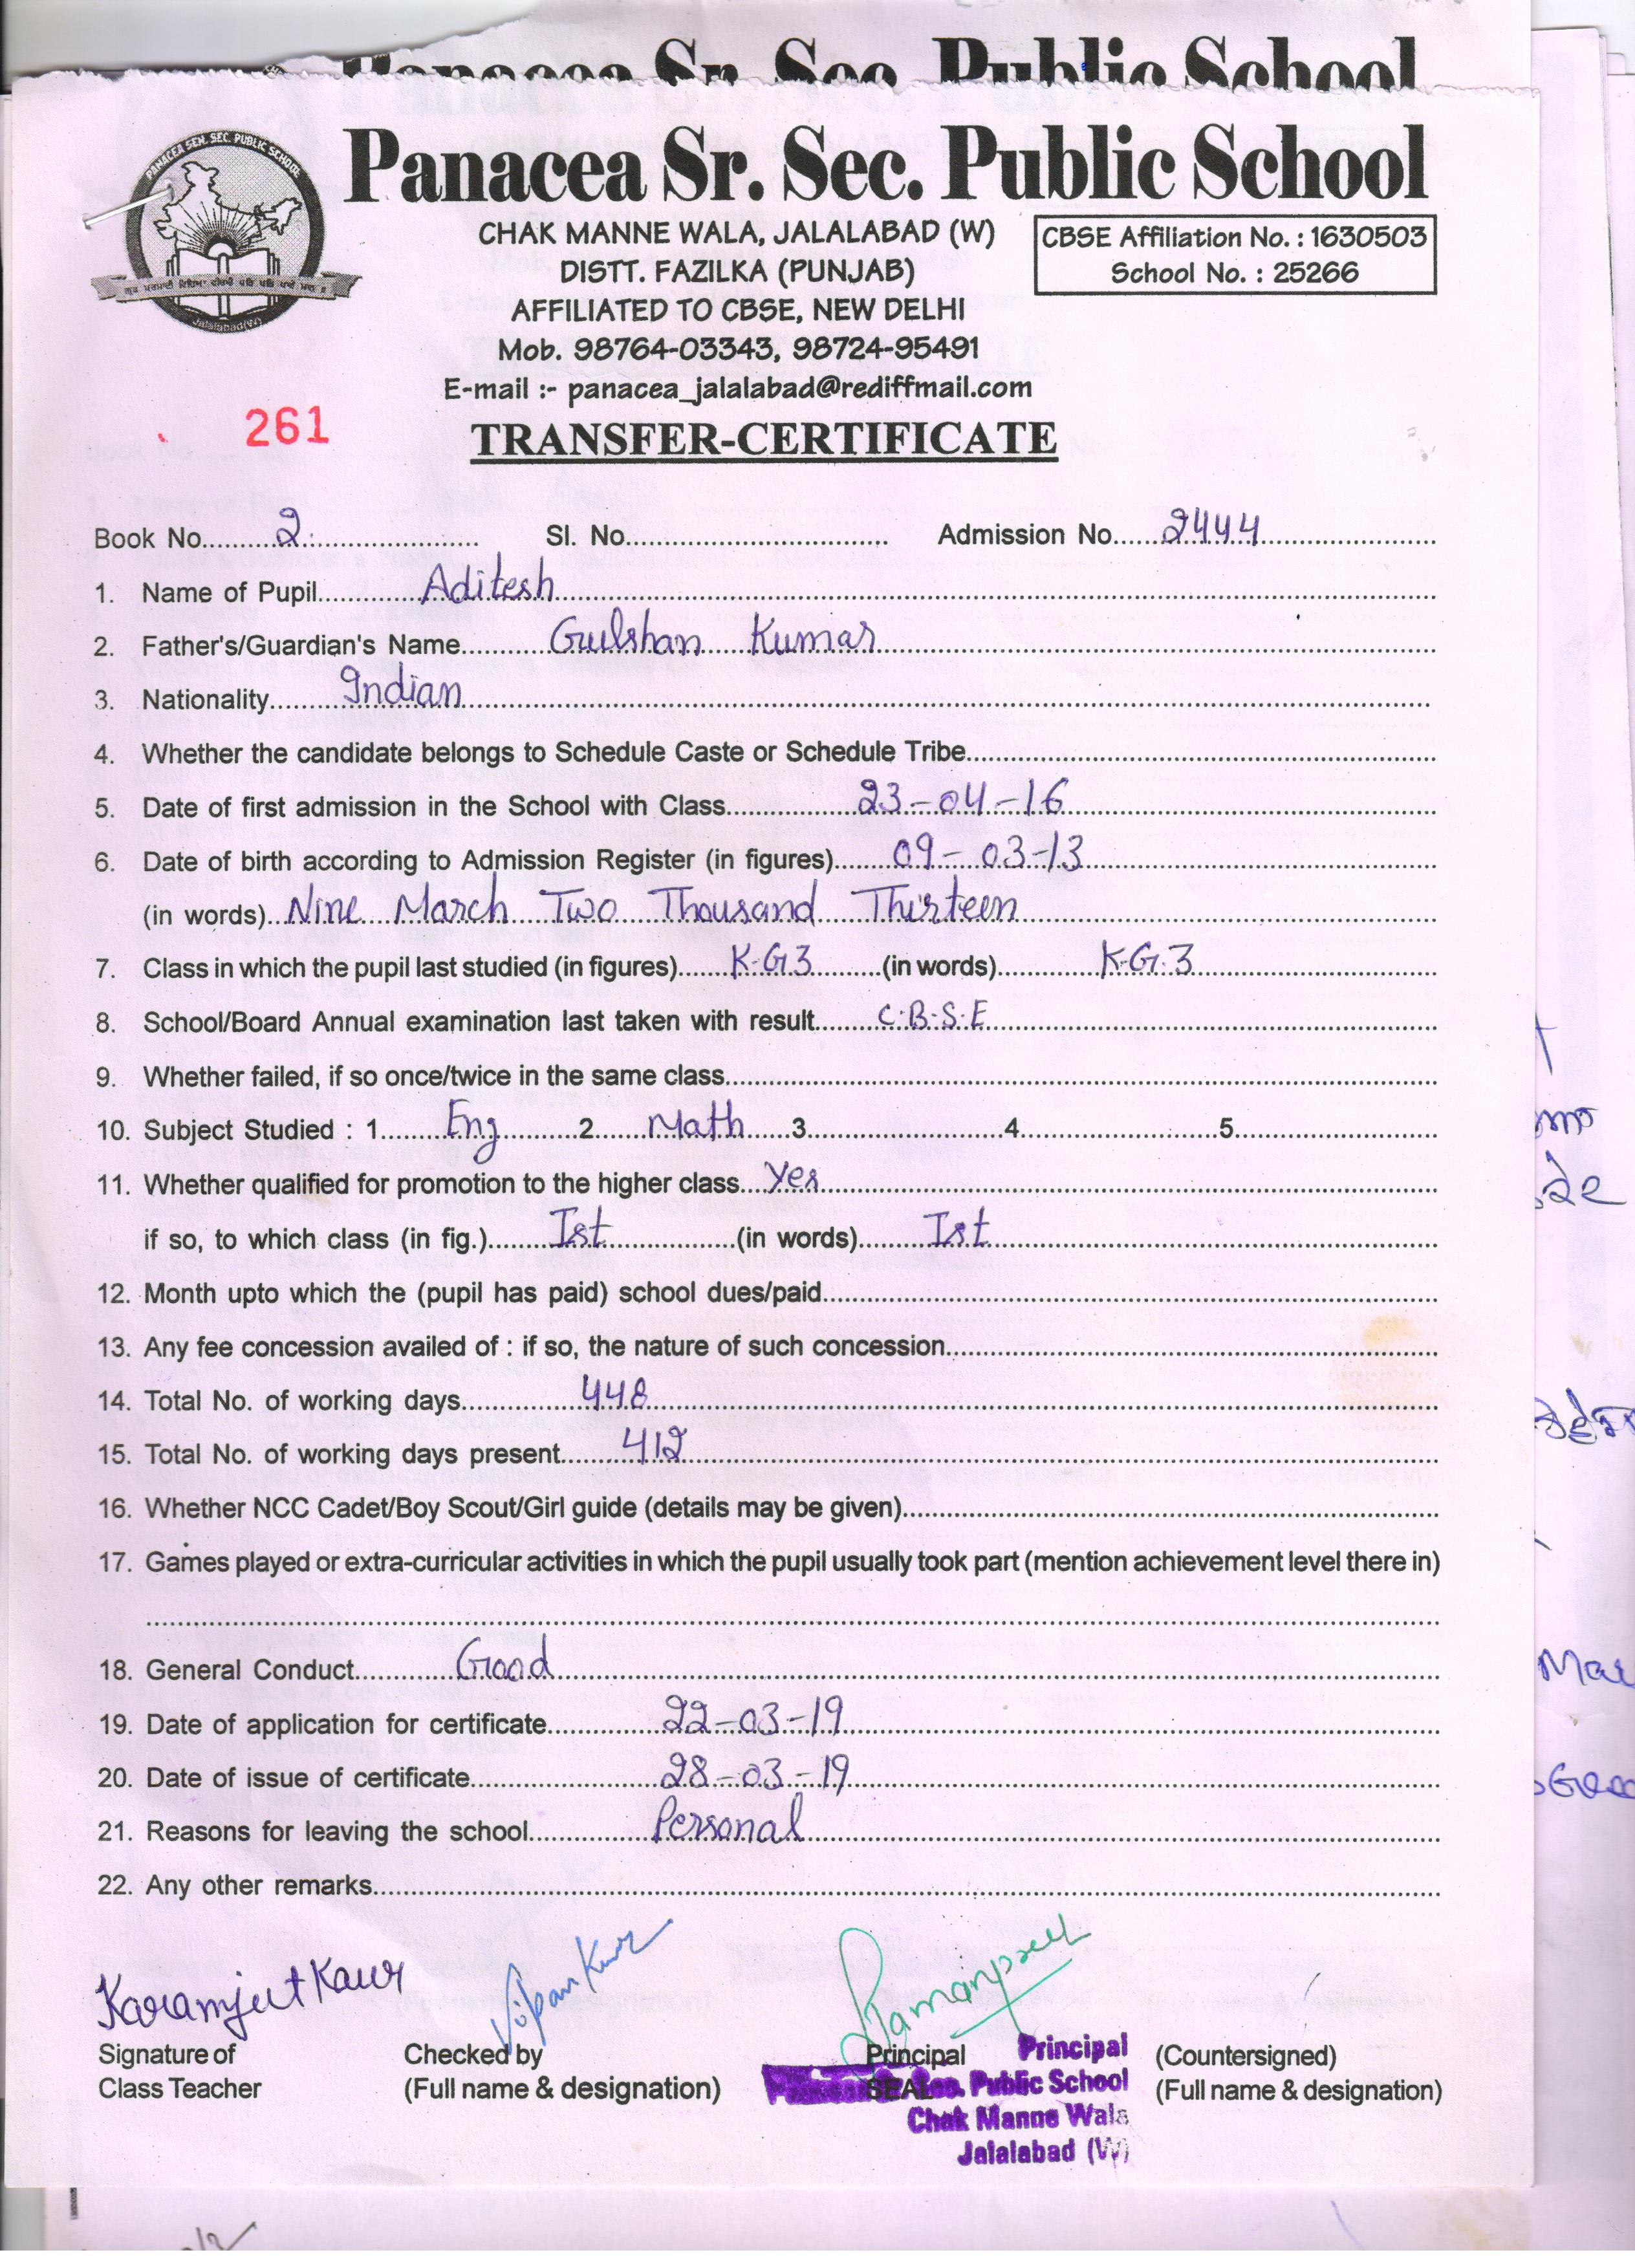 Panacea Sr. Sec. Public School
PANACEA SEN. SEC. PUBLIC SCHOOL
Jalalabad(W)
Panacea Sr. Sec. Public School
CHAK MANNE WALA, JALALABAD (W)
CBSE Affiliation No. : 1630503
School No. : 25266
DISTT. FAZILKA (PUNJAB)
AFFILIATED TO CBSE, NEW DELHI
Mob. 98764-03343, 98724-95491
E-mail :- panacea_jalalabad@rediffmail.com
261
TRANSFER-CERTIFICATE
Book No. 2. Sl. No. Admission No. 2444
1. Name of Pupil Aditesh
2. Father's/Guardian's Name Gulshan Kumar
3. Nationality Indian
4. Whether the candidate belongs to Schedule Caste or Schedule Tribe
5. Date of first admission in the School with Class 23-04-16
6. Date of birth according to Admission Register (in figures) 09-03-13
(in words) Nine March Two Thousand Thirteen
7. Class in which the pupil last studied (in figures) K.G3 (in words) K.G.3
8. School/Board Annual examination last taken with result C.B.S.E
9. Whether failed, if so once/twice in the same class
10. Subject Studied : 1 Eng 2 Math 3 4 5
11. Whether qualified for promotion to the higher class Yes
if so, to which class (in fig.) Ist (in words) Ist
12. Month upto which the (pupil has paid) school dues/paid
13. Any fee concession availed of : if so, the nature of such concession
14. Total No. of working days 448
15. Total No. of working days present 412
16. Whether NCC Cadet/Boy Scout/Girl guide (details may be given)
17. Games played or extra-curricular activities in which the pupil usually took part (mention achievement level there in)
18. General Conduct Good
19. Date of application for certificate 22-03-19
20. Date of issue of certificate 28-03-19
21. Reasons for leaving the school Personal
22. Any other remarks
Karamjeet Kaur
Ramanpreet
Signature of
Class Teacher
Checked by
(Full name & designation)
Principal
SEAL
Principal
Sec. Public School
Chak Manne Wala
Jalalabad (W)
(Countersigned)
(Full name & designation)